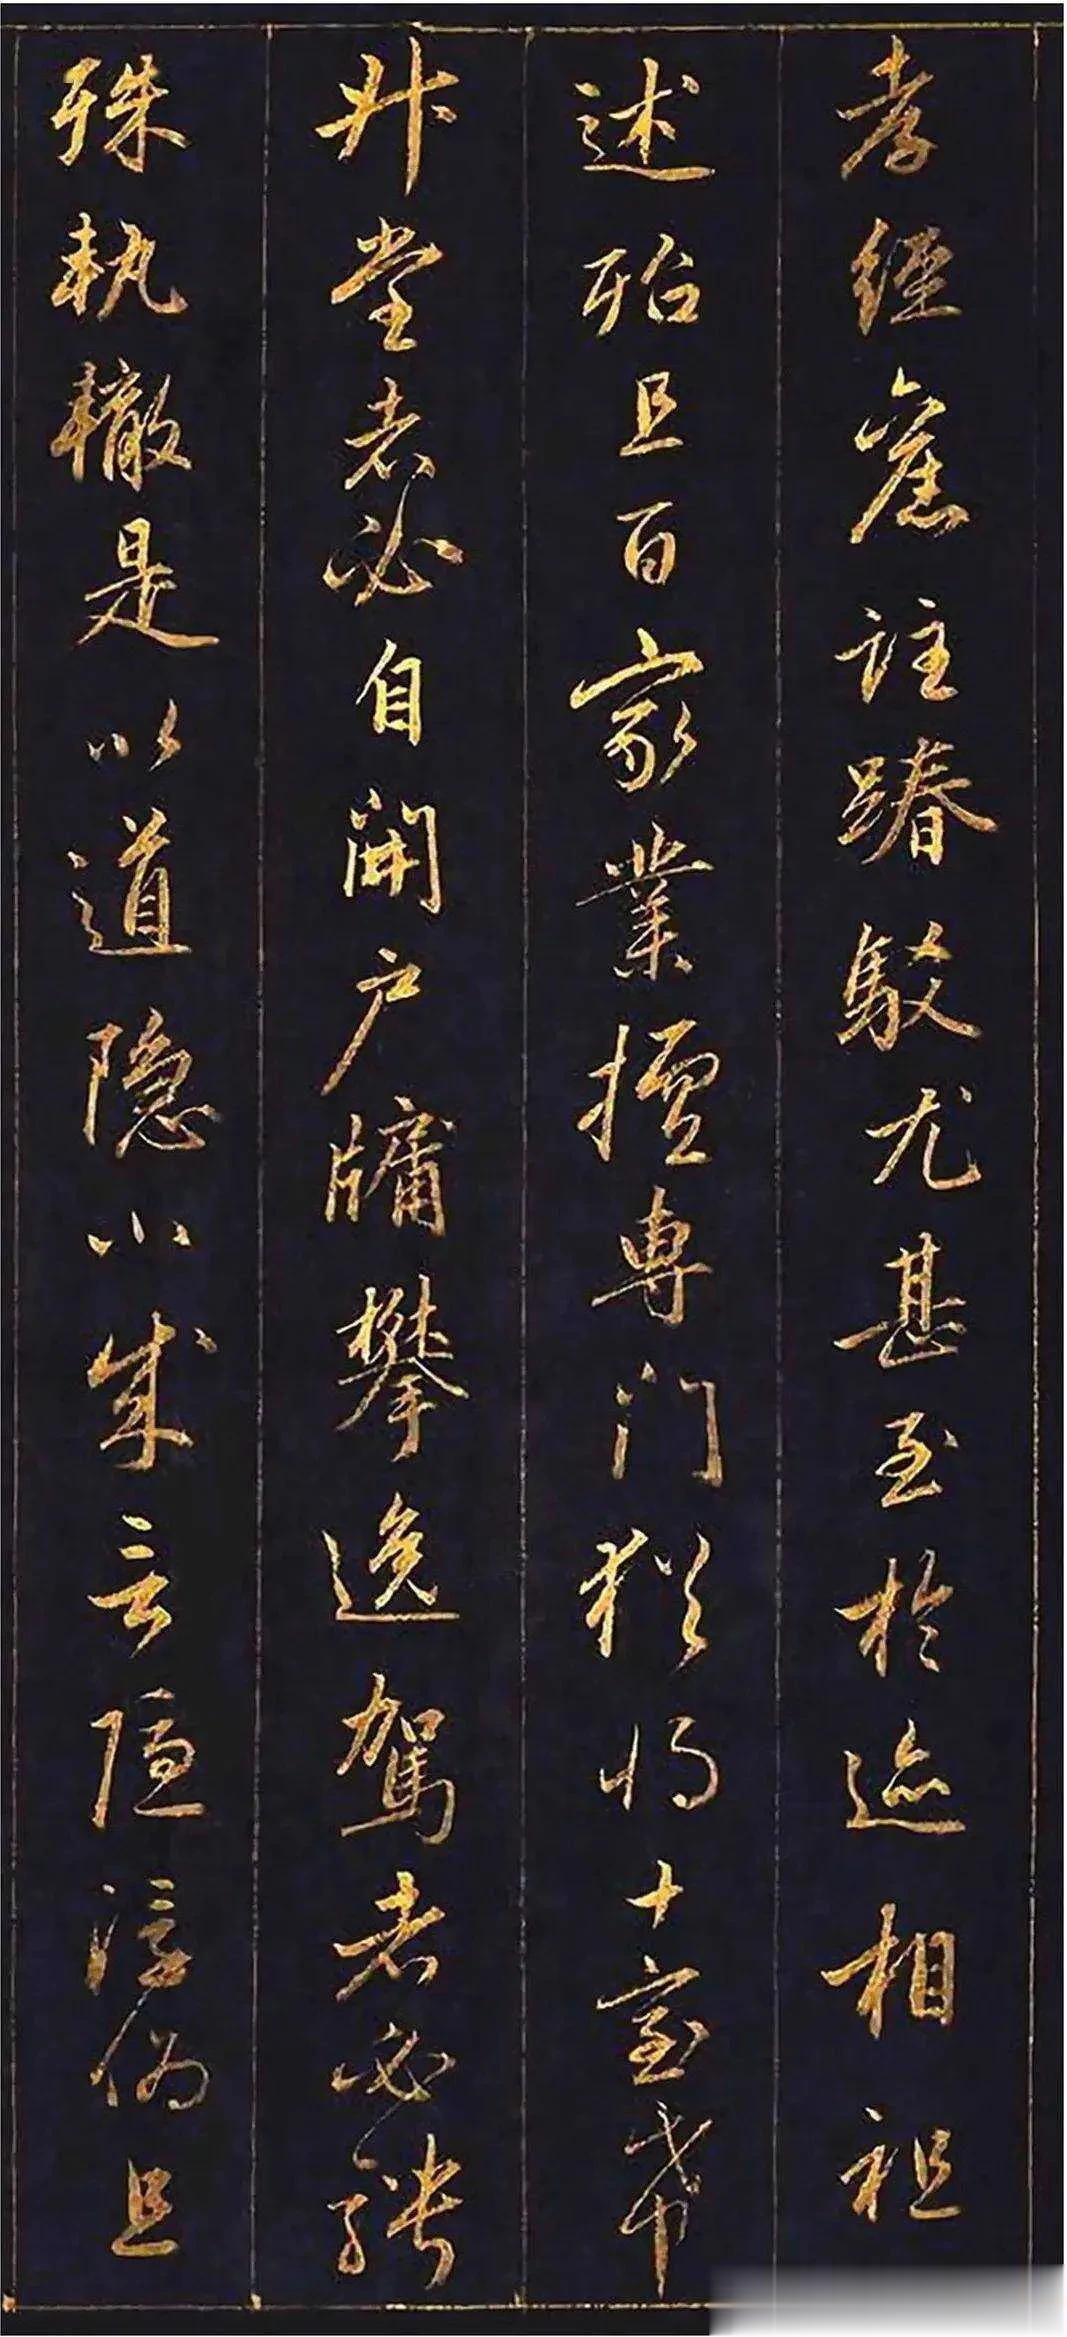 孝經舊註踳駮尤甚至於迹相祖
述殆且百家業擅專門猶將十室希
升堂者必自開户牖攀逸駕者必騁
殊軌轍是以道隐小成言隱浮偽且